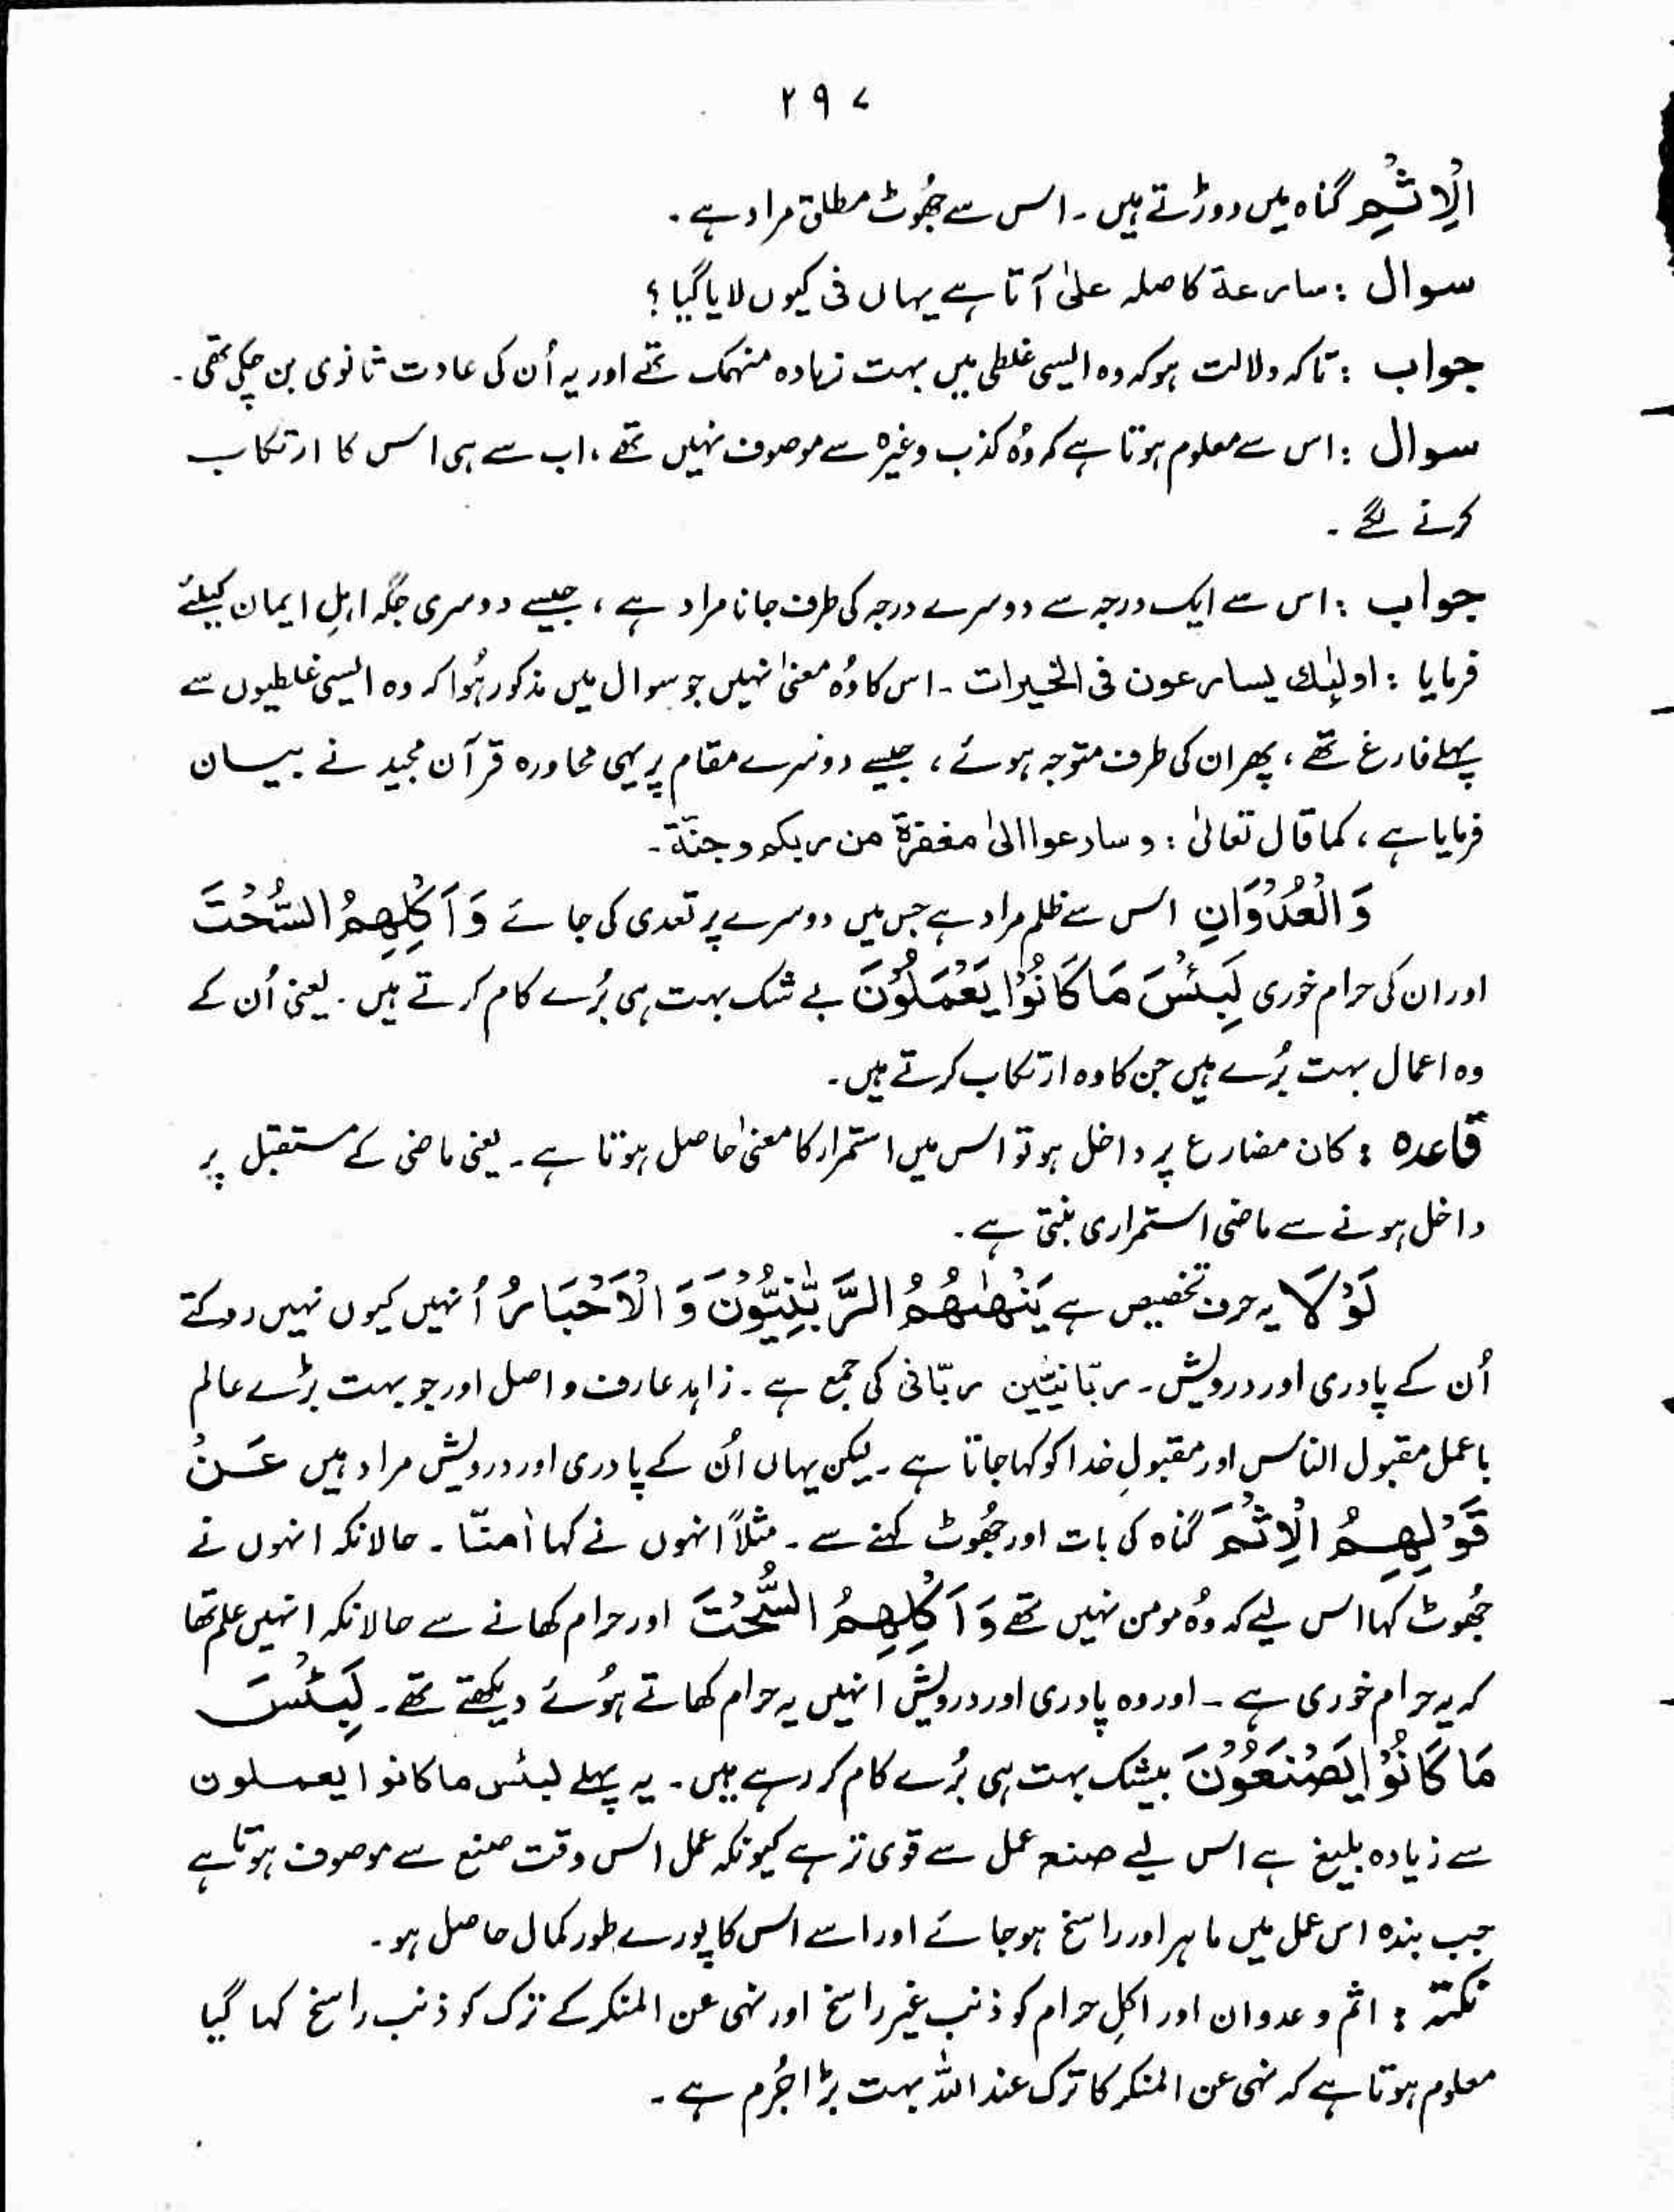 ۲۹۷
الْاِثْمِ گناہ میں دوڑتے ہیں ۔ اس سے جھُوٹ مطلق مراد ہے ۔
سوال : سارعة کا صلہ علیٰ آتا ہے یہاں فی کیوں لایا گیا ؟
جواب : تاکہ دلالت ہو کہ وہ ایسی غلطی میں بہت زیادہ منہمک تھے اور یہ اُن کی عادت ثانوی بن چکی تھی ۔
سوال : اس سے معلوم ہوتا ہے کہ وُہ کذب وغیرہ سے موصوف نہیں تھے ، اب سے ہی اس کا ارتکاب
کرنے لگے ۔
جواب : اس سے ایک درجہ سے دوسرے درجہ کی طرف جانا مراد ہے ، جیسے دوسری جگہ اہلِ ایمان کیلئے
فرمایا : اولٰئِك يسارعون فی الخيرات ۔ اس کا وُہ معنیٰ نہیں جو سوال میں مذکور ہُوا کہ وہ ایسی غلطیوں سے
پہلے فارغ تھے ، پھر ان کی طرف متوجہ ہوئے ، جیسے دوسرے مقام پر یہی محاورہ قرآن مجید نے بیان
فرمایا ہے ، کما قال تعالیٰ : و سادعوا الیٰ مغفرة من ربكم و جنّة ۔
وَ الْعُدْوَانِ اس سے ظلم مراد ہے جس میں دوسرے پر تعدی کی جائے وَ اَكْلِهِمُ السُّحْتَ
اور ان کی حرام خوری لَبِئْسَ مَا كَانُوْا يَعْمَلُوْنَ بے شک بہت ہی بُرے کام کرتے ہیں ۔ یعنی اُن کے
وہ اعمال بہت بُرے ہیں جن کا وہ ارتکاب کرتے ہیں ۔
قاعدہ : کان مضارع پر داخل ہو تو اس میں استمرار کا معنیٰ حاصل ہوتا ہے ۔ یعنی ماضی کے مستقبل پر
داخل ہونے سے ماضی استمراری بنتی ہے ۔
لَوْ لَا یہ حرف تخصیص ہے يَنْهٰىهُمُ الرَّبّٰنِيُّوْنَ وَ الْاَحْبَارُ اُنہیں کیوں نہیں روکتے
اُن کے پادری اور درویش ۔ ربّانیّین ربّانی کی جمع ہے ۔ زاہد عارف واصل اور جو بہت بڑے عالم
باعمل مقبول الناس اور مقبولِ خدا کو کہا جاتا ہے ۔ لیکن یہاں اُن کے پادری اور درویش مراد ہیں عَنْ
قَوْلِهِمُ الْاِثْمَ گناہ کی بات اور جھُوٹ کہنے سے ۔ مثلاً انہوں نے کہا اٰمنّا ۔ حالانکہ انہوں نے
جھُوٹ کہا اس لیے کہ وُہ مومن نہیں تھے وَ اَكْلِهِمُ السُّحْتَ اور حرام کھانے سے حالانکہ انہیں علم تھا
کہ یہ حرام خوری ہے ۔ اور وہ پادری اور درویش انہیں یہ حرام کھاتے ہُوئے دیکھتے تھے ۔ لَبِئْسَ
مَا كَانُوْا يَصْنَعُوْنَ بیشک بہت ہی بُرے کام کر رہے ہیں ۔ یہ پہلے لبئس ما كانوا يعملون
سے زیادہ بلیغ ہے اس لیے صنع عمل سے قوی تر ہے کیونکہ عمل اس وقت صنع سے موصوف ہوتا ہے
جب بندہ اس عمل میں ماہر اور راسخ ہو جائے اور اسے اس کا پورے طور کمال حاصل ہو ۔
نکتہ : اثم و عدوان اور اکلِ حرام کو ذنب غیر راسخ اور نہی عن المنکر کے ترک کو ذنب راسخ کہا گیا
معلوم ہوتا ہے کہ نہی عن المنکر کا ترک عند اللہ بہت بڑا جُرم ہے ۔